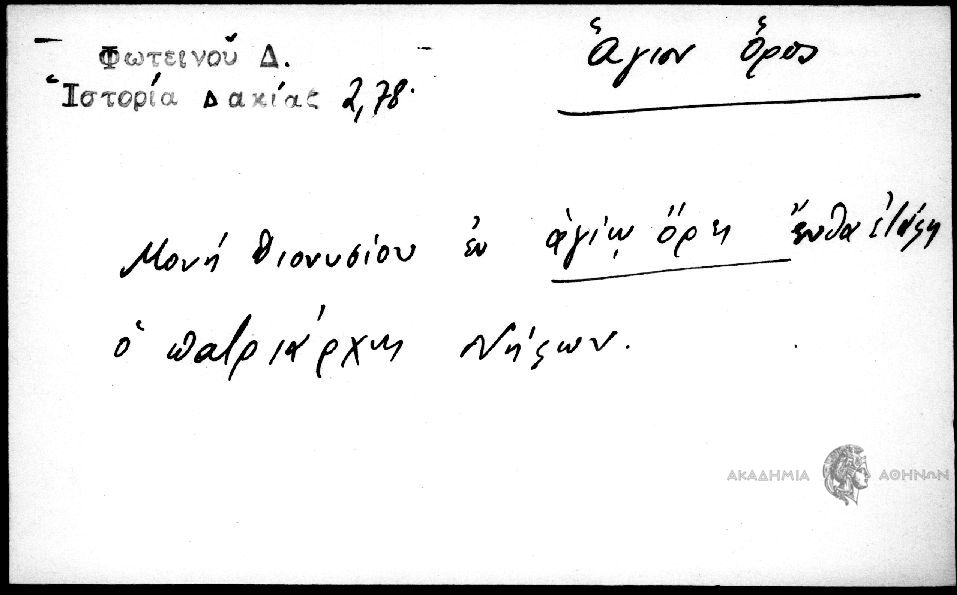 Φωτεινοῦ Δ.
Ἱστορία Δακίας 2,78.
Ἅγιον Ὄρος
Μονή Διονυσίου ἐν ἁγίῳ ὄρει ἔνθα ἐτάφη
ὁ πατριάρχης Νήφων.
ΑΚΑΔΗΜΙΑ ΑΘΗΝΩΝ